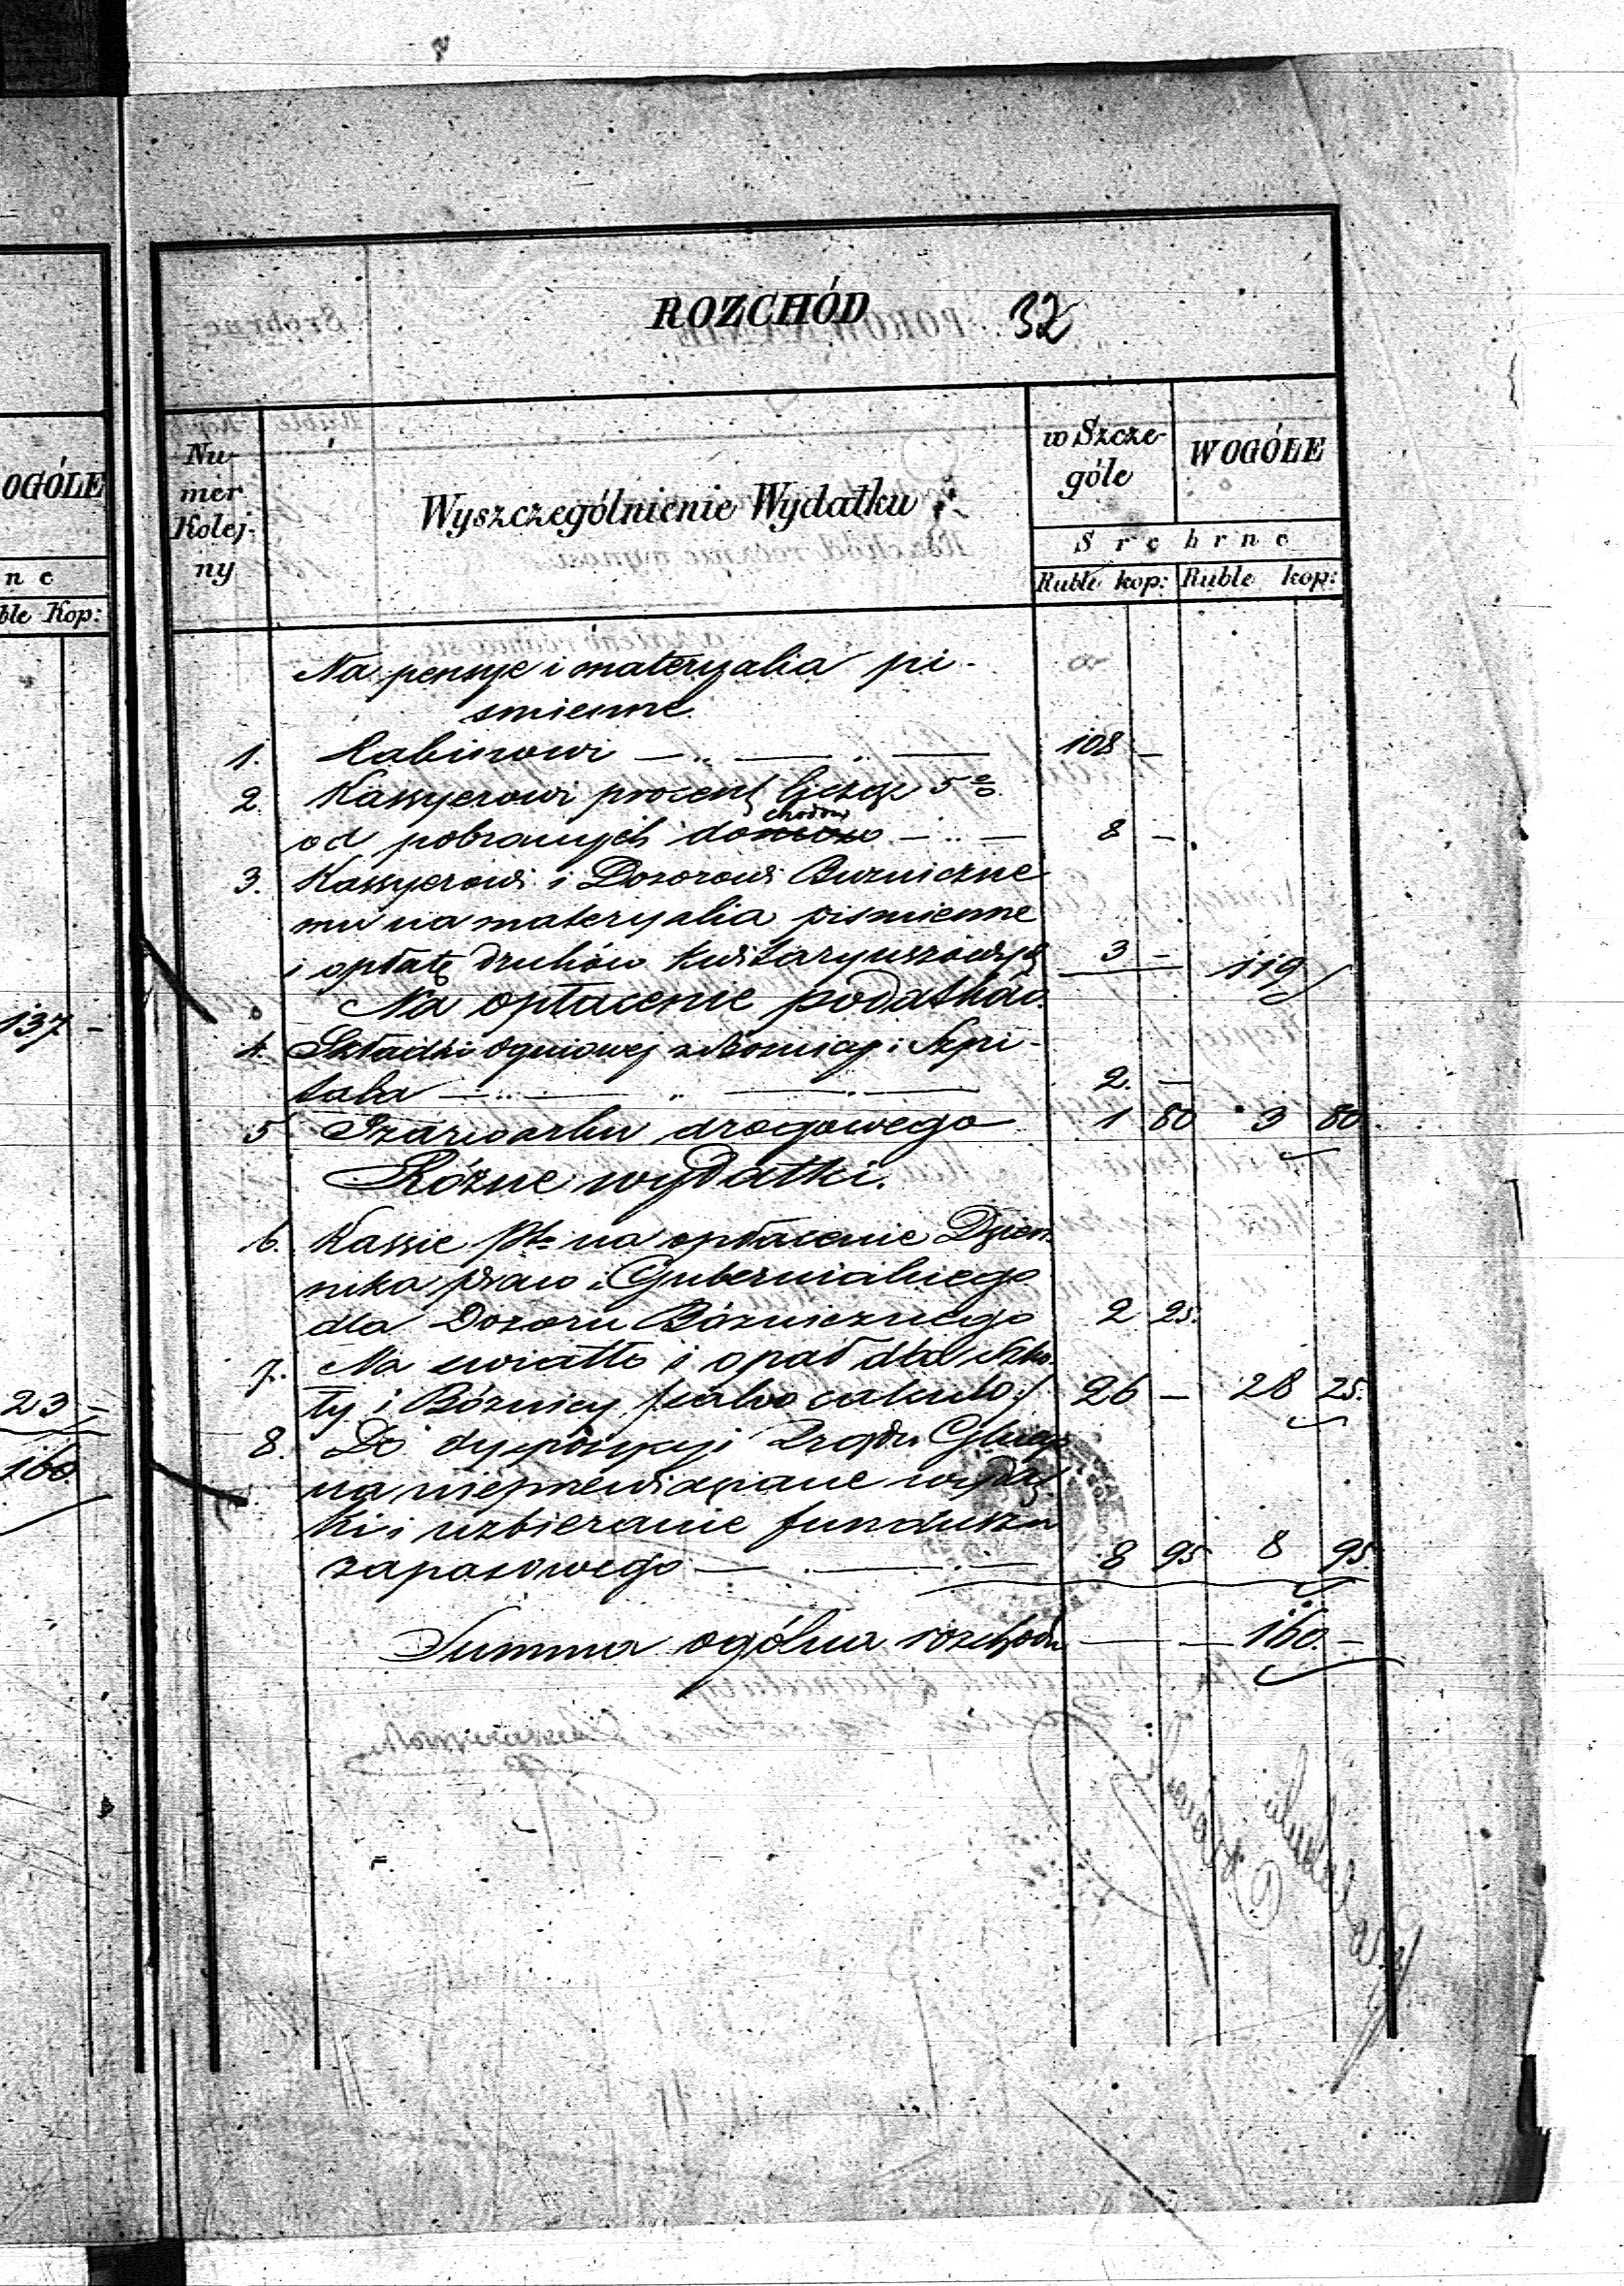 OGÓLE
n e
ble Kop:
137 -
23 -
160.
ROZCHÓD 32
Nu-
mer
Kolej-
ny
Wyszczególnienie Wydatku
w Szcze-
góle
W OGÓLE
S r e b r n e
Ruble kop: Ruble kop:
Na pensye i materyalia pi-
smienne
1. Rabinowi 108 -
2. Kassyerowi procent licząc 5
od pobranych dochodów 8 -
3. Kassyerowi i Dozorowi Buzniczne
mu na materyalia pismienne
i opłatę druków kwitaryuszowych 3 - 119
Na opłacenie podatków.
4. Składki Ogniowej z Bóznicy i Szpi-
tala 2. -
5 Szarwarku drogowego 1 80 3 80
Rózne wydatki.
6. Kassie Pto na opłacenie Dzien-
nika praw i Gubernialnego
dla Dozoru Bóżnicznego 2 25.
7. Na swiatło i opał dla Szko-
ły i Bóznicy /salvo calculo/ 26 - 28 25.
8. Do dyspozycyi Rządu Gbego
na nieprzewidziane wydat
ki i uzbieranie funduszu
zapasowego 8 95 8 95
Summa ogólna rozchodu 160. -